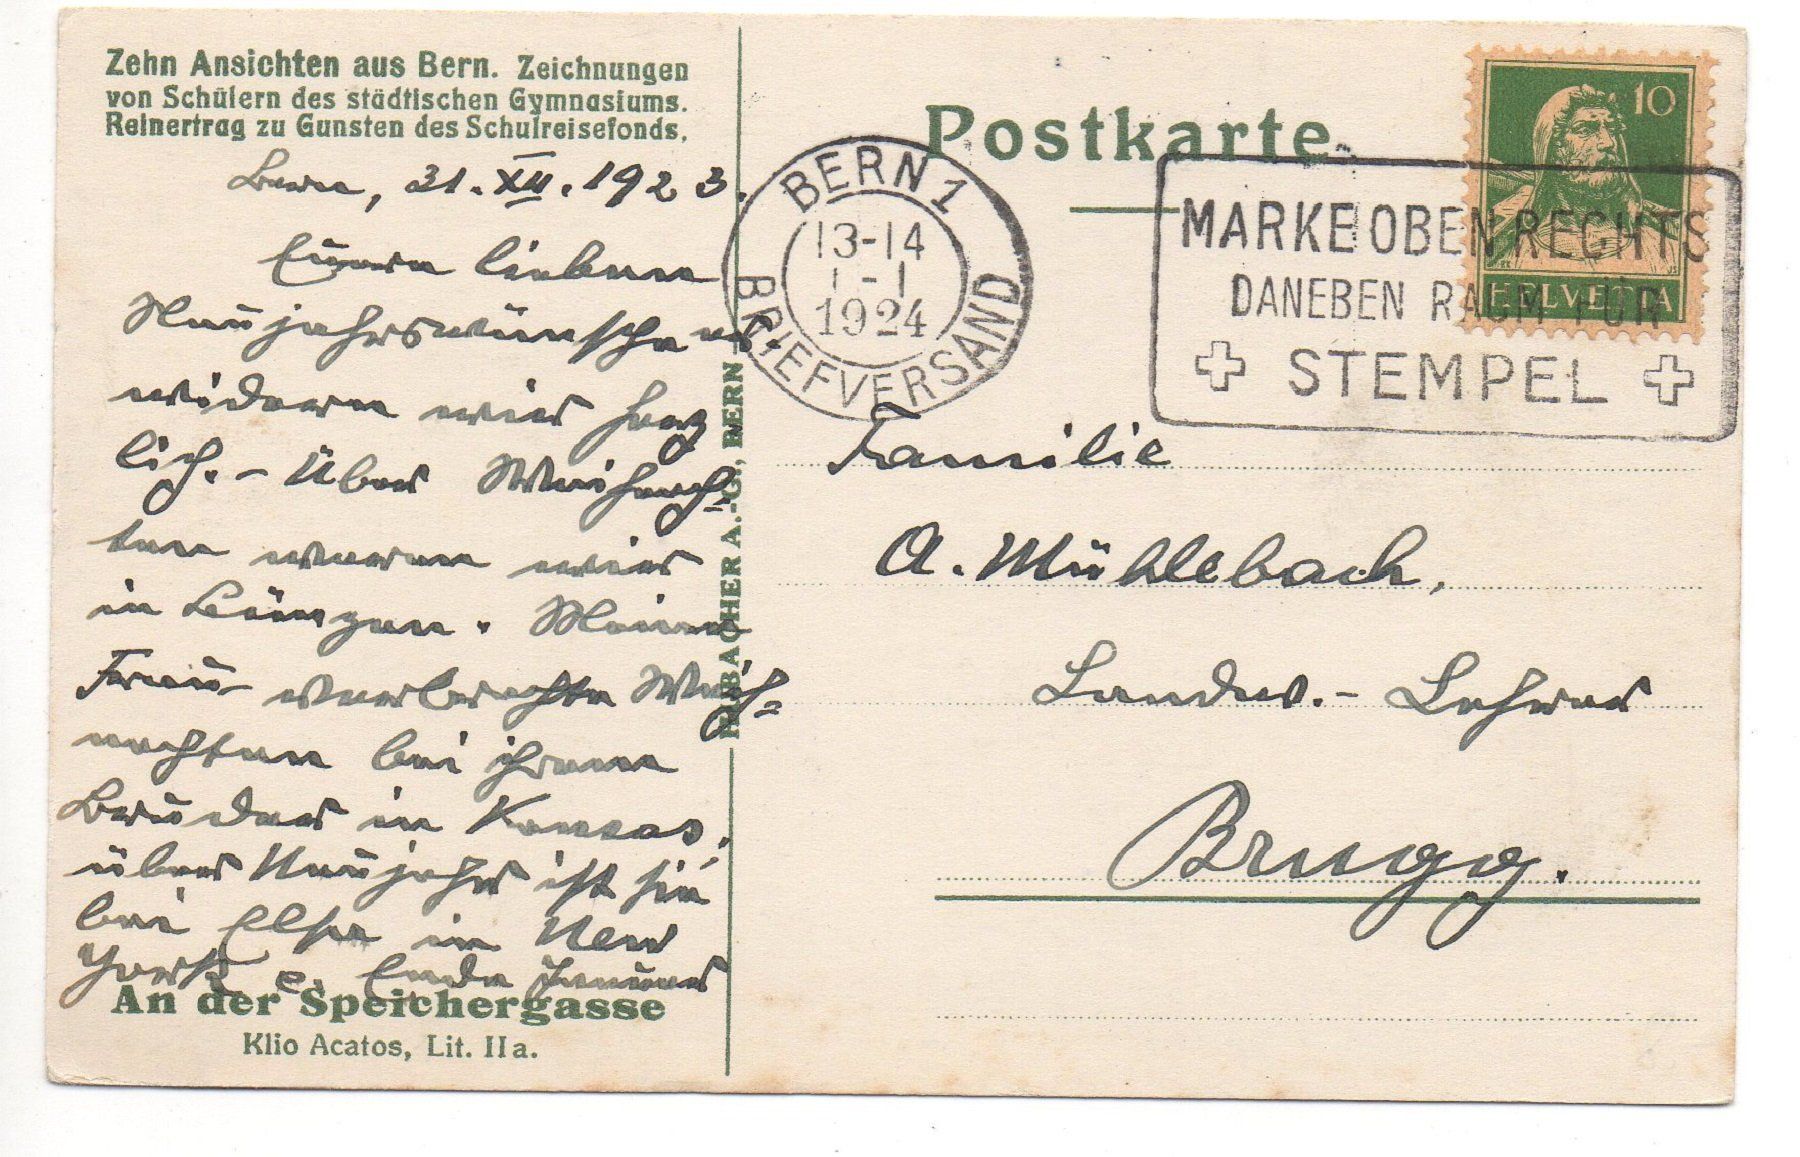 Zehn Ansichten aus Bern. Zeichnungen
von Schülern des städtischen Gymnasiums.
Reinertrag zu Gunsten des Schulreisefonds.
Bern, 31. XII. 1923.
Euern lieben
Neujahrswünschen er-
widern wir herz
lich. – Über Weihnach-
ten waren wir
in
Meine
Frau verbrachte Weih=
nachten bei ihrem
Bruder in Kansas,
über Neujahr ist sie
bei Else in New
York e. Ende Januar
An der Speichergasse
Klio Acatos, Lit. IIa.
BACHER A.-G., BERN
Postkarte
BERN 1
13-14
1-1
1924
BRIEFVERSAND
MARKE OBEN RECHTS
DANEBEN RAUM FÜR
STEMPEL
10
HELVETIA
Familie
A. Mühlebach,
Landw.- Lehrer
Brugg.